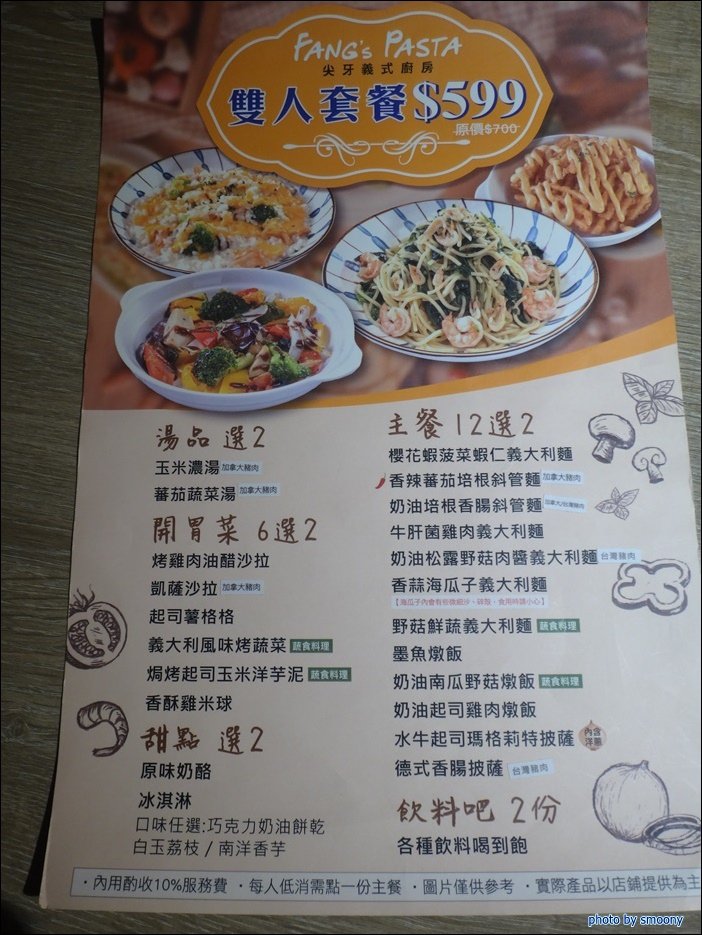 FANG's PASTA
尖牙義式廚房
雙人套餐$599
原價$700
湯品 選2
玉米濃湯 加拿大豬肉
蕃茄蔬菜湯 加拿大豬肉
開胃菜 6選2
烤雞肉油醋沙拉
凱薩沙拉 加拿大豬肉
起司薯格格
義大利風味烤蔬菜 蔬食料理
焗烤起司玉米洋芋泥 蔬食料理
香酥雞米球
甜點 選2
原味奶酪
冰淇淋
口味任選:巧克力奶油餅乾
白玉荔枝 / 南洋香芋
主餐 12選2
櫻花蝦菠菜蝦仁義大利麵
香辣蕃茄培根斜管麵 加拿大豬肉
奶油培根香腸斜管麵 加拿大/台灣豬肉
牛肝菌雞肉義大利麵
奶油松露野菇肉醬義大利麵 台灣豬肉
香蒜海瓜子義大利麵
【海瓜子內會有些微細沙、碎殼，食用時請小心】
野菇鮮蔬義大利麵 蔬食料理
墨魚燉飯
奶油南瓜野菇燉飯 蔬食料理
奶油起司雞肉燉飯
水牛起司瑪格莉特披薩 內含洋蔥
德式香腸披薩 台灣豬肉
飲料吧 2份
各種飲料喝到飽
・內用酌收10%服務費 ・每人低消需點一份主餐 ・圖片僅供參考 ・實際產品以店鋪提供為主
photo by smoony